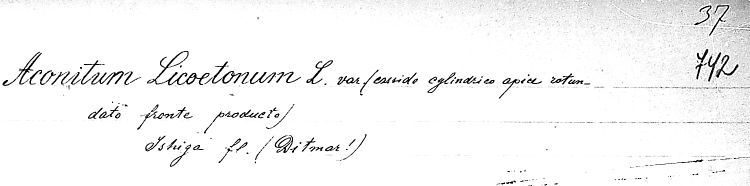 37
742
Aconitum Licoetonum L. var (casside cylindrico apice rotun-
dato fronte producto)
Ishiga fl. (Ditmar!)